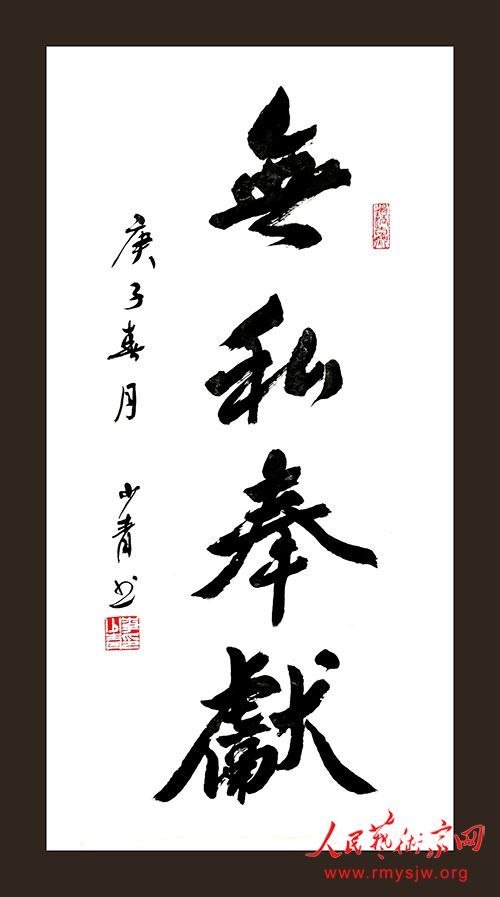 無私奉獻
庚子春月 少青书
人民藝術家网
www.rmysjw.org